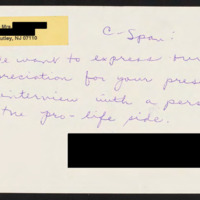 Mrs.
utley, NJ 07110
C-Span:
e want to express our
preciation for your pres
interview with a pers
the pro-life side.